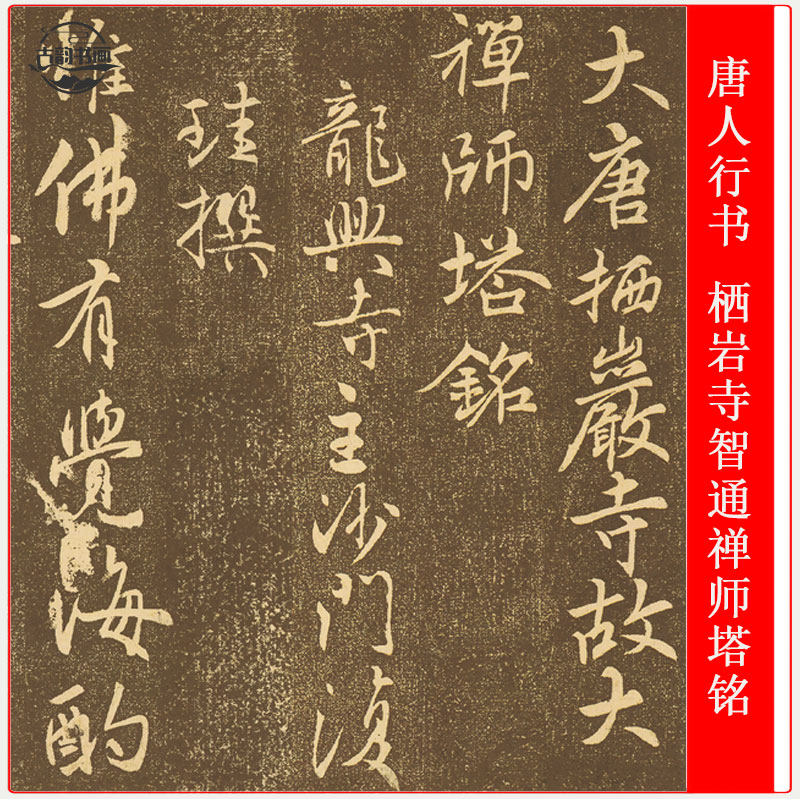 大唐栖巖寺故大
禪師塔銘
龍興寺主沙門復
珪撰
惟佛有覺海酌
唐人行书 栖岩寺智通禅师塔铭
古韵书画